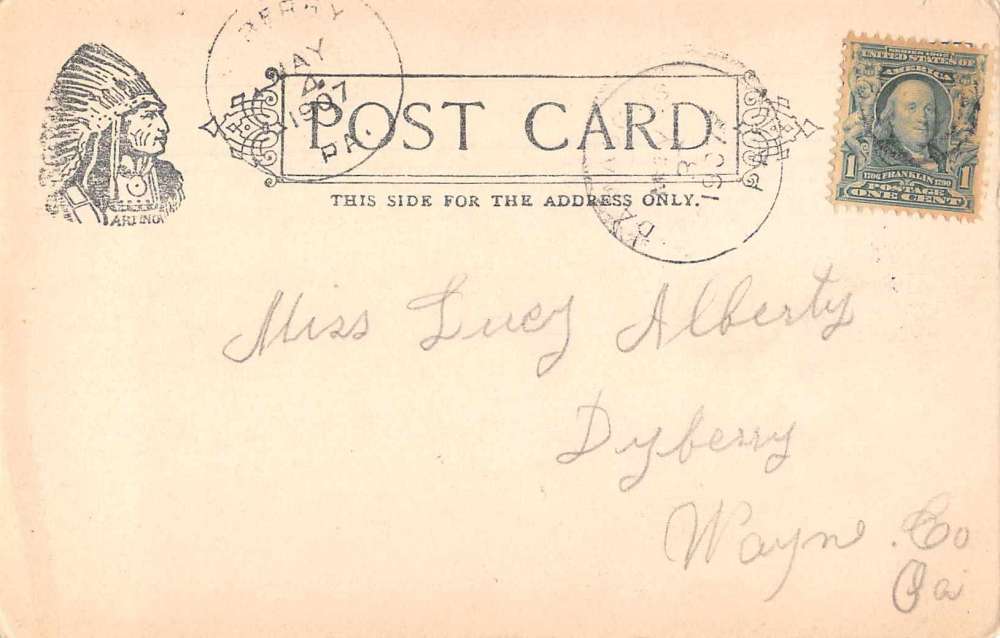 MAY
4
1907
PA.
POST CARD
THIS SIDE FOR THE ADDRESS ONLY.
UNITED STATES OF
AMERICA
1 FRANKLIN 1
POSTAGE
ONE CENT
Miss Lucy Alberty
Dyberry
Wayne. Co
Pa